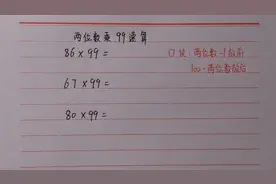 两位数乘99速算
86×99=
口诀:两位数-1放前
100-两位数放后
67×99=
80×99=